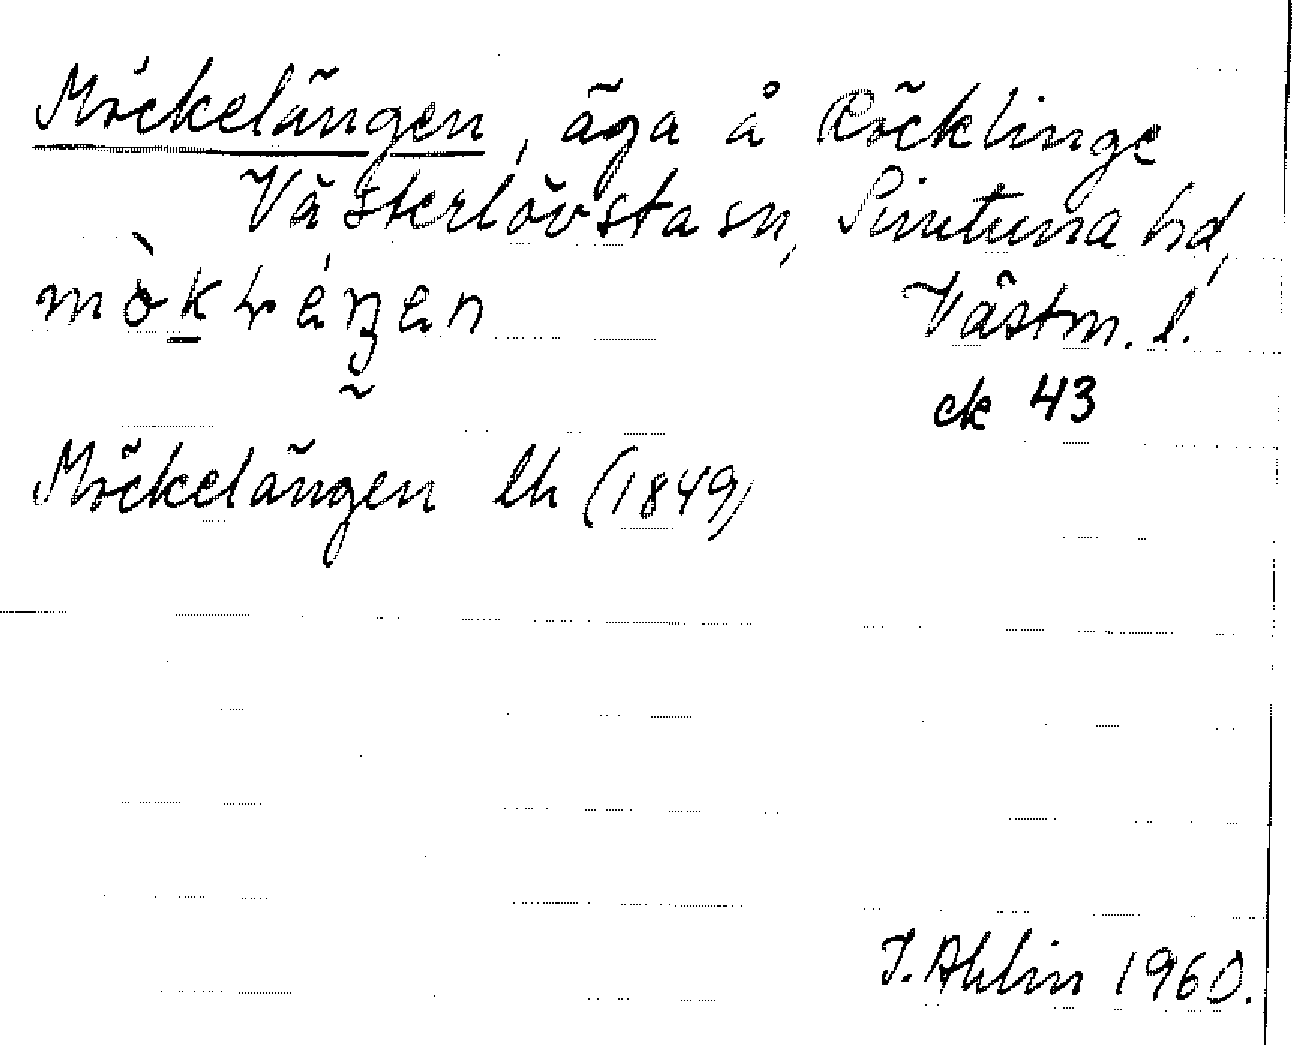 Möckelängen, äga å Röcklinge
Västerlövsta sn, Simtuna hd,
Västm. l.
ek 43
Möckelängen lh (1849)
I. Ahlin 1960.